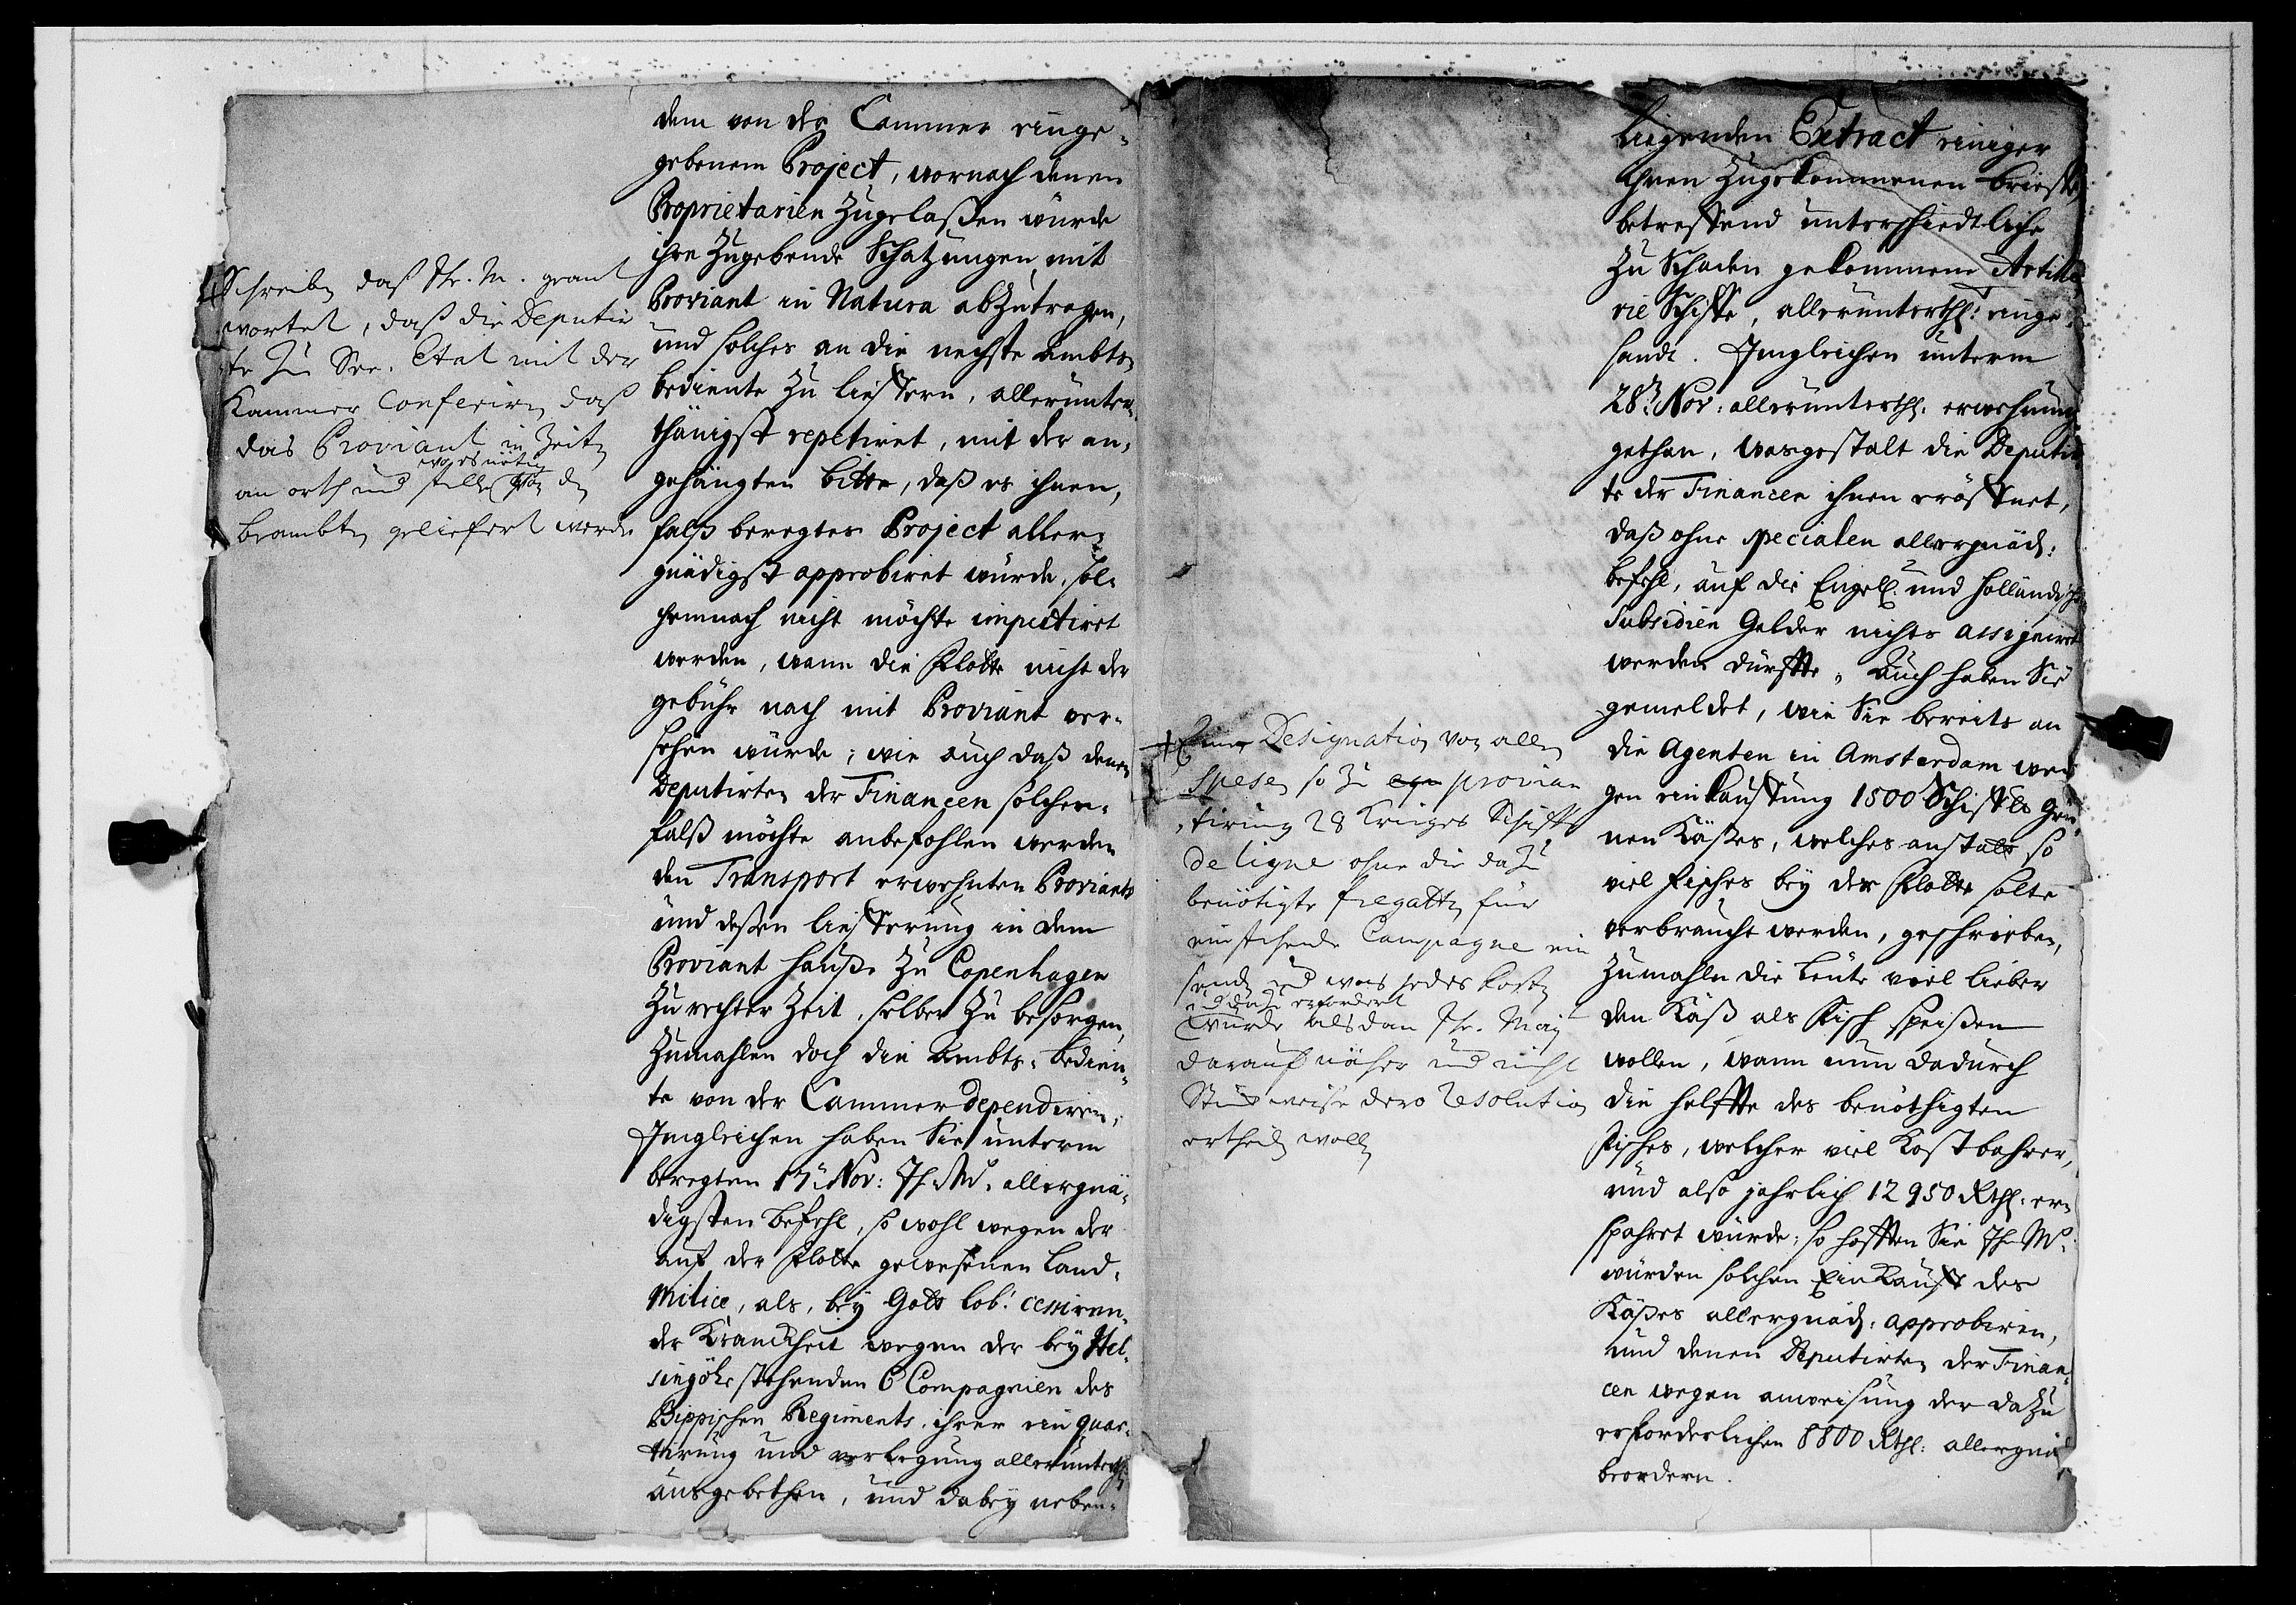 dem von der Cammer einge-
gebenem Project, wornach denen
Proprietarien zugelaßen würde
ihre zugebende Schatzungen mit
Proviant in Natura abzutragen,
und solches an die nechste Ambts-
bediente zu lieffern, allerunter-
thänigst repetiret, mit der an-
gehängten bitte, daß es ihnen,
falß beregtes Project aller-
gnädigst approbiret würde, sol-
chemnach nicht möchte impütiret
werden, wann die Flotte nicht der
gebühr nach mit Proviant ver-
sehen würde; wie auch daß denen
Deputirten der Financen solchen-
falß möchte anbefohlen werden
den Transport erwehnten Proviants
und deßen liefferung in dem
Proviant Hauße zu Copenhagen
zu rechter Zeit, selber zu besorgen,
zumahlen doch die Ambts-bedien-
te von der Cammer dependiren,
Imgleichen haben Sie unterm
beregten 17. Nov: Ih. M. allergnä-
digsten befehl, so wohl wegen der
auf der Flotte gewesenen Land-
Milice, als, bey Gott lob! cessiren-
der Kranckheit wegen der bey Hel-
singöhr stehenden 6 Compagnien des
Bippischen Regiments, ihrer ein quar-
tirung und verlegung allerunterth:
ausgebethen, und dabey neben-
Schreiben daß Ihr. M. geant
wortet, daß die Deputir
te zu See-Etat mit der
Kammer Conferiren daß
das Proviant in Zeiten
wo es nötig
an orth und stelle von den
beambten geliefert werde
liegenden Extract einiger
ihnen zugekommenen brieffe,
betreffend unterschiedtliche
zu Schaden gekommene Artille-
rie Schiffe, allerunterth: einge-
sandt. Imgleichen unterm
28. Nov: allerunterth: erwehnung
gethan, wasgestalt die Deputir-
te der Financen ihnen eröffnet,
daß ohne specialen allergnäd:
befehl, auf die Engell. und Holländische
Subsidien Gelder nichts assigniret
werden dürffte, Auch haben Sie
gemeldet, wie Sie bereits an
die Agenten in Amsterdam we-
gen einkauffung 1500 Schiff℔ Grü-
nen Käßes, welches anstatt so
viel Fisches bey der Flotte solte
verbraucht werden, geschrieben,
zumahln die Leute viel lieber
den Käß als Fisch speißen
wollen, wann nun dadurch
die helffte des benöthigten
Fisches, welcher viel Kostbahrer,
und also jahrlich 12950 Rthl: er-
spahret würde; so hofften Sie Ih. M.
würden solchen Einkauff des
Käßes allergnäd: approbiren,
und denen Deputirten der Finan-
cen wegen anweisung der dazu
erforderlichen 8800 Rthl: allergnäd
beordern.
Eine Designation von allen
spesen so zu provian
tiring 28 Krieges Schiffe
de ligne ohne die dazu
benötigte fregatten für
einstehende Campagne ein
senden und was jedes kosten
und dazu erfordert
würde alsdan Ihr. May
darauf näher und nicht
Stückweise dero resolution
ertheilen wollen